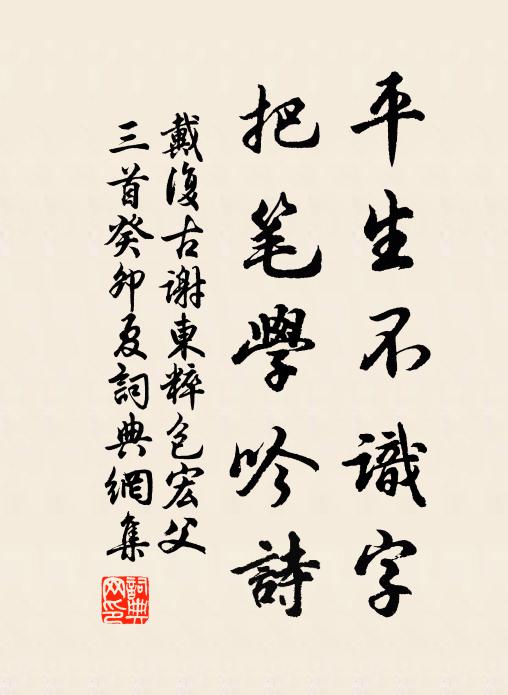 平生不識字
把笔學吟詩
戴復古謝東粹包宏父
三首癸卯夏詞典網集
詞典网印